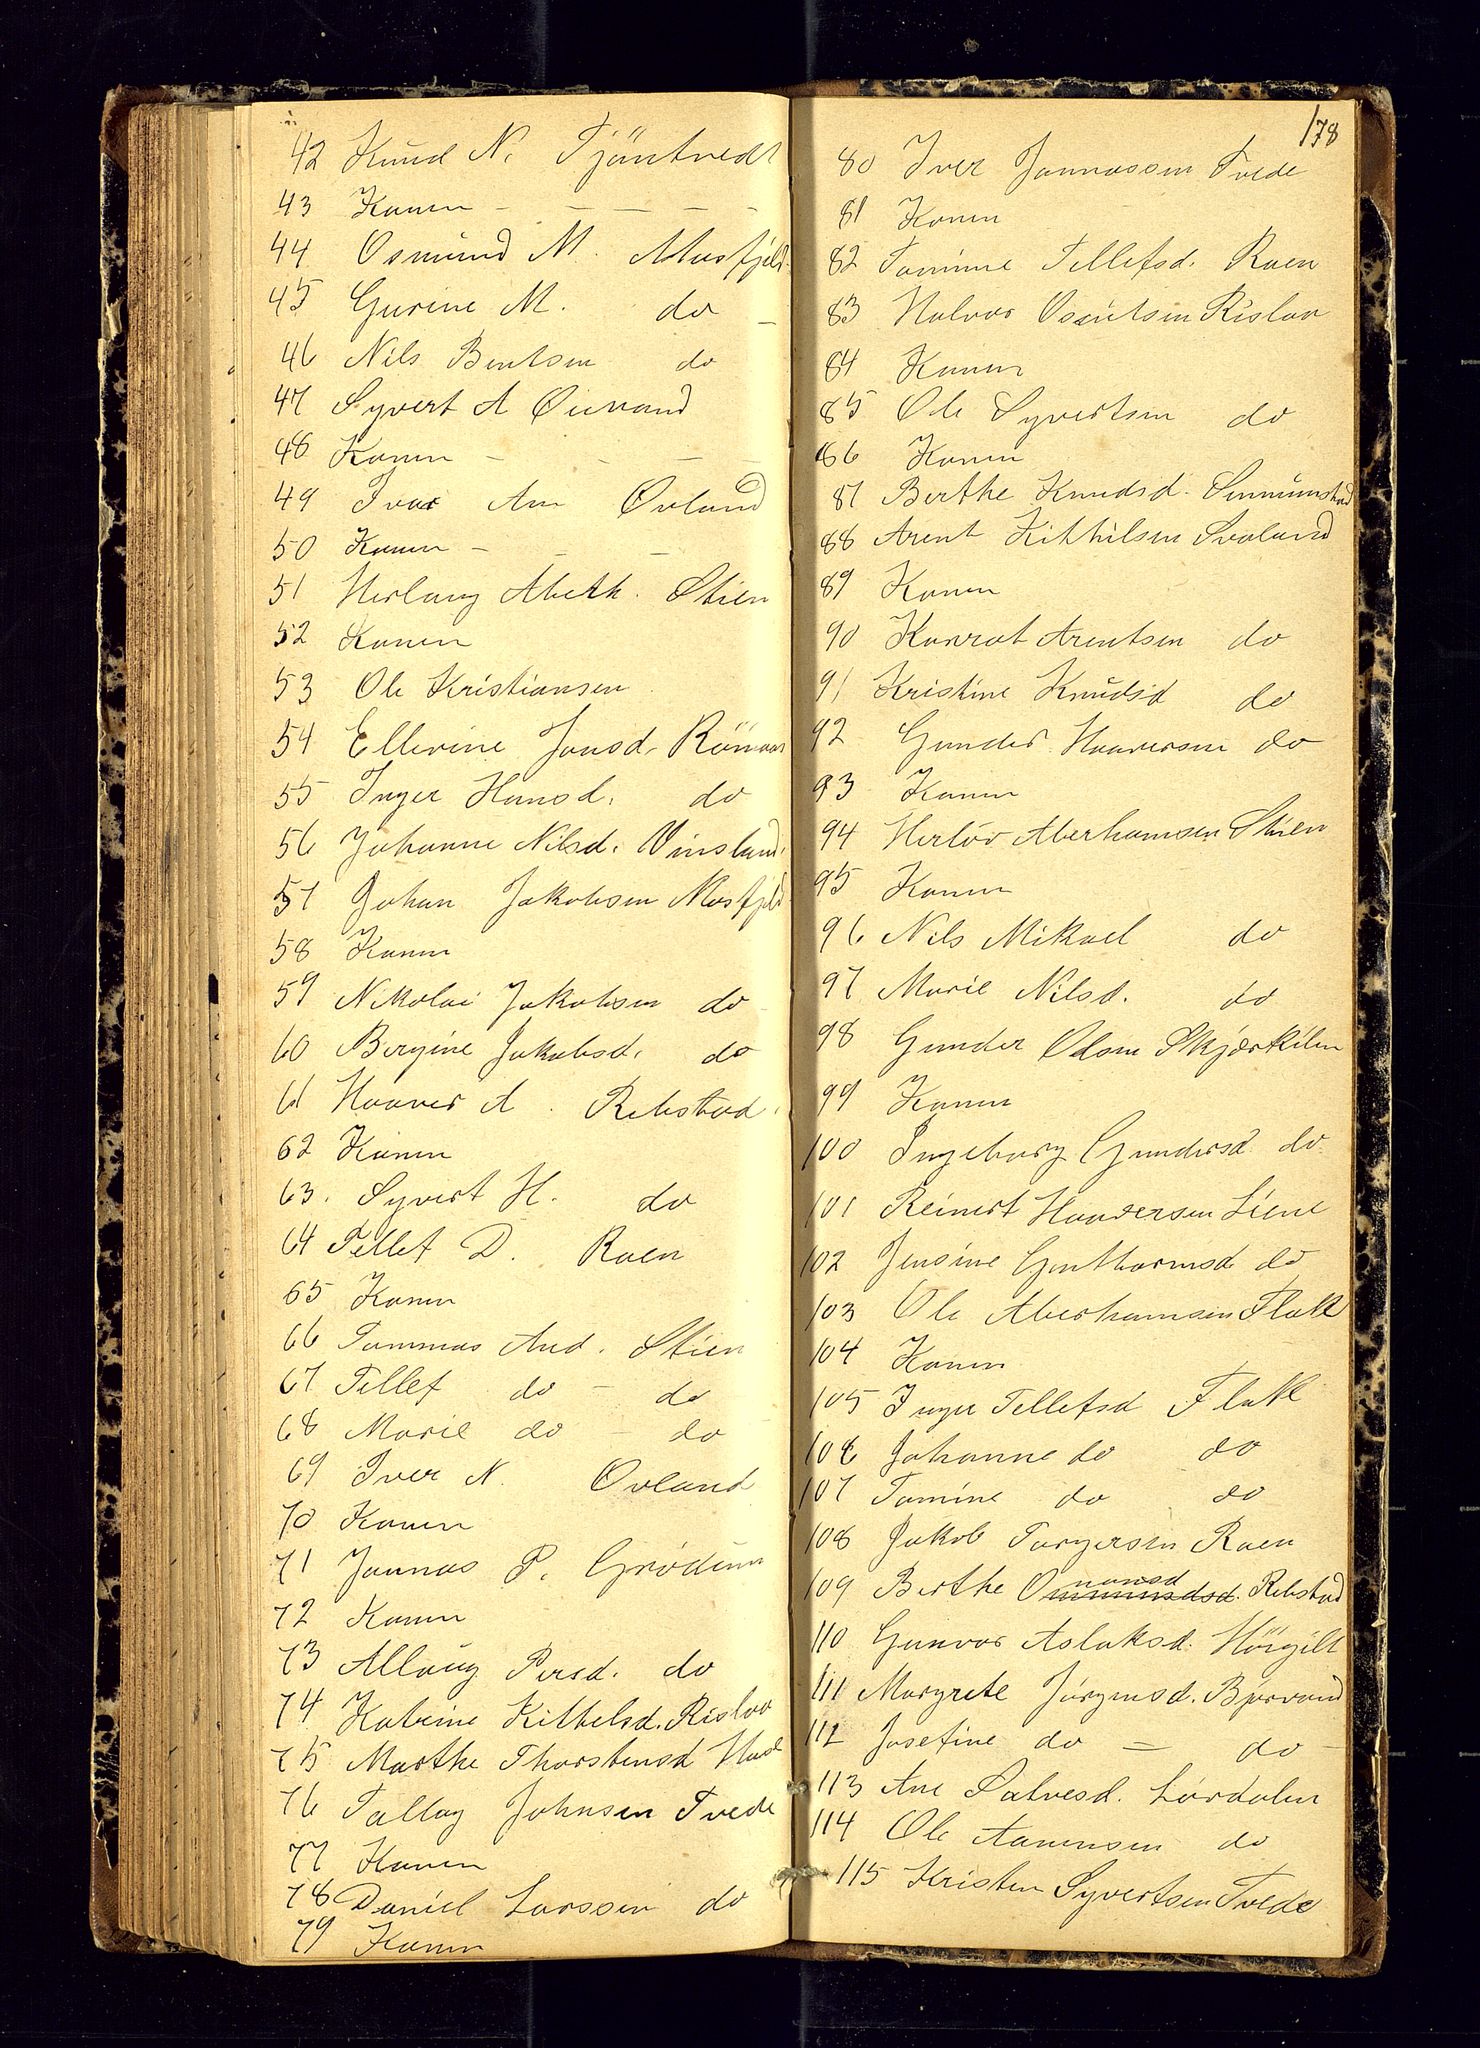 42 Knud N. Tjöntvedt
43 Konen - - - - -
44 Osmund M. Mosfjeld
45 Gurine M. do -
46 Nils Bentsen do
47 Syvert A
48 Konen - - - -
49 Ivar Am Ovland
50 Konen - - -
51 Herlaug Abeth. Stien
52 Konen
53 Ole Kristiansen
54 Ellevine Jonsd. Rönaas
55 Inger Hansd. do
56 Johanne Nilsd. Vinsland.
57 Johan Jakobsen Mosfjeld
58 Konen
59 Nikolai Jakobsen do
60 Bergine Jakobsd. do
61 Haaver A. Rebstad.
62 Konen
63. Syvert H. do
64 Tellef D. Roen
65 Konen
66 Tommas And. Stien
67 Tellef do - do
68 Marie do - do
69 Iver N. Ovland
70 Konen
71 Jonnas P. Grödum
72 Konen
73 Allaug Persd. do
74 Katrine Kittelsd. Risloo
75 Marthe Thorstensd
76 Tallag Johnsen Tvede
77 Konen
78 Daniel Larssen do
79 Konen
178
80 Iver Jonnassen Tvede
81 Konen
82 Tomine Tellefsd. Roen
83 Halvor Osultsen Risloo
84 Konen
85 Ole Syvertsen do
86 Konen
87 Berthe Knudsd.
88 Arent Kittilsen Svaland
89 Konen
90 Konrat Arentsen do
91 Kristine Knudsd do
92 Gunder Haaversen do
93 Konen
94 Herlöv Aberhamsen Stien
95 Konen
96 Nils Mikael do
97 Marie Nilsd. do
98 Gunder Olsen Skjærkilen
99 Konen
100 Ingeborg Gundersd do
101 Reinert Haaversen Liene
102 Jensine Guttormsd do
103 Ole Aberhamsen Flatt
104 Konen
105 Inger Tellefsd Flatt
106 Johanne do do
107 Tomine do do
108 Jakob Torgersen Roen
109 Berthe Omonsd Rebstad
110 Gunvor Aslaksd. Hörgilt
111 Margrete Jörgensd. Bjorvand
112 Josefine do = do -
113 Ane Salvesd. Lördalen
114 Ole Aanensen do
115 Kristen Syvertsen Tvede